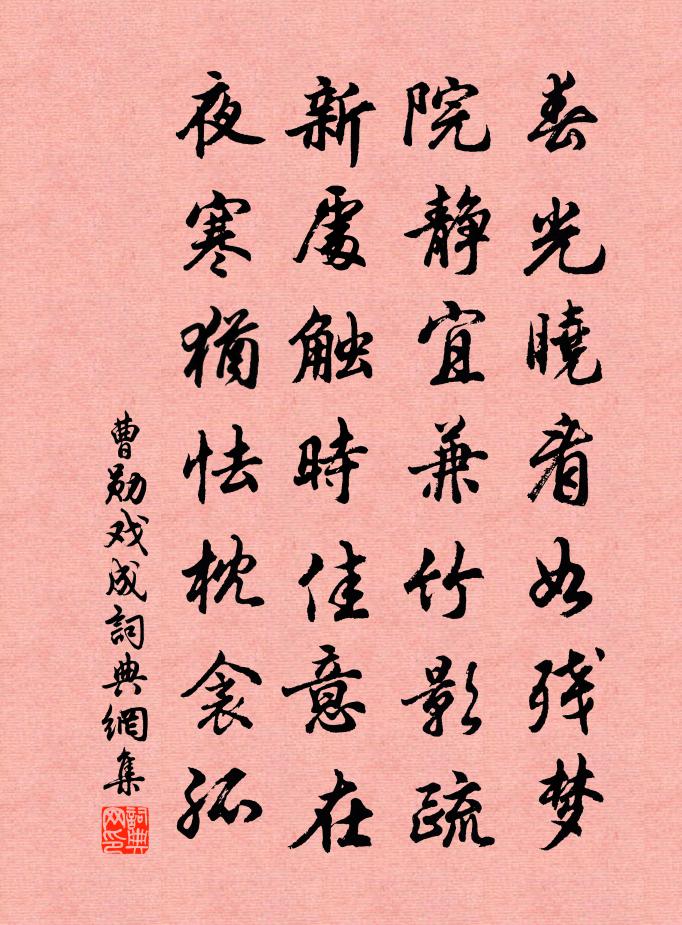 春光曉看如残梦
院靜宜兼竹影疏
新處触時佳意在
夜寒猶怯枕衾孤
曹勋戏成詞典網集
詞典网印